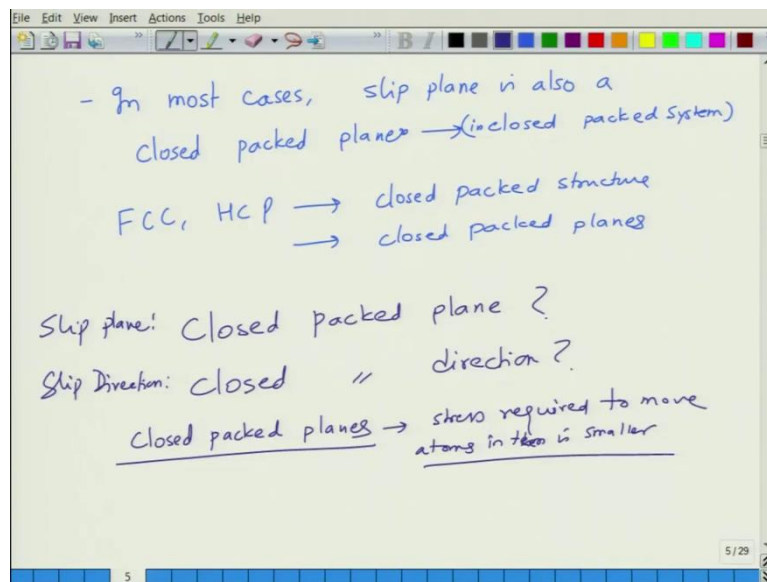 File Edit View Insert Actions Tools Help
B I
- In most cases, slip plane is also a
closed packed planes → (in closed packed system)
FCC, HCP → closed packed structure
→ closed packed planes
Slip plane: Closed packed plane ?
Slip Direction: Closed " direction ?
Closed packed planes → stress required to move
atoms in them is smaller
5/29
5